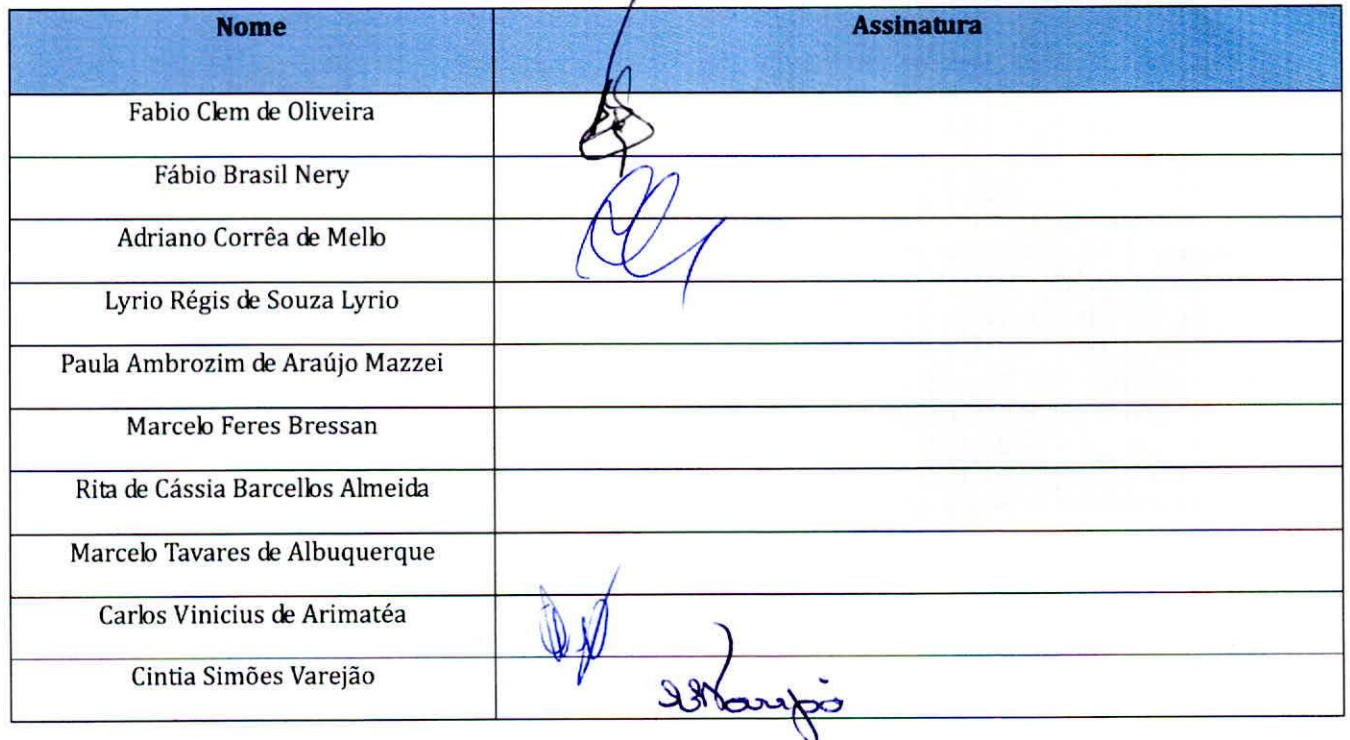 Nome Assinatura
Fabio Clem de Oliveira
Fábio Brasil Nery
Adriano Corrêa de Mello
Lyrio Régis de Souza Lyrio
Paula Ambrozim de Araújo Mazzei
Marcelo Feres Bressan
Rita de Cássia Barcellos Almeida
Marcelo Tavares de Albuquerque
Carlos Vinicius de Arimatéa
Cintia Simões Varejão